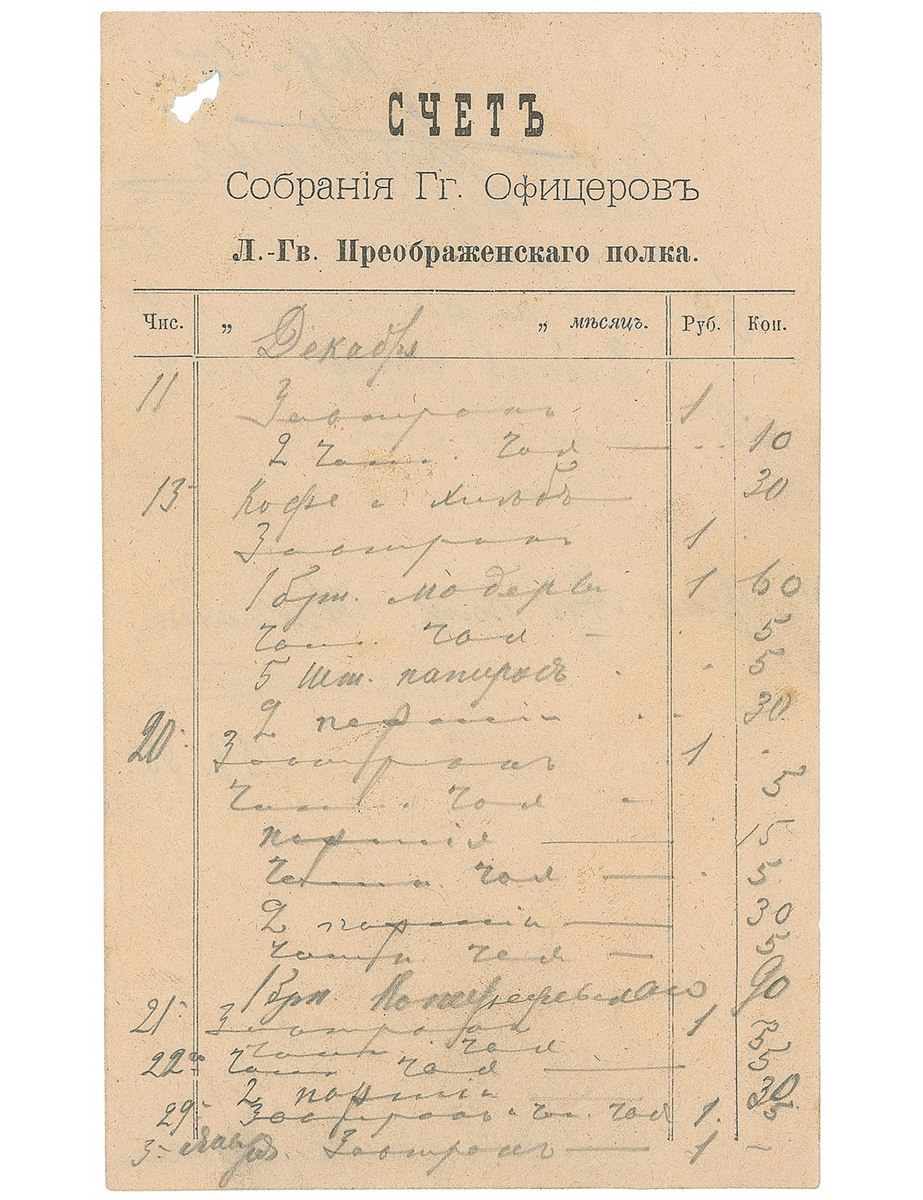 СЧЕТЪ
Собранія Гг. Офицеровъ
Л.-Гв. Преображенскаго полка.
Чис. „ Декабря „ мѣсяцъ. Руб. Коп.
11 Завтракъ 1
2 чаш. чая — 10
13 Кофе и хлѣбъ — 30
Завтракъ 1
1 бут. мадеры 1 60
чаш. чая - 5
5 шт. папиросъ 5
2 партіи 30
20 Завтракъ 1
чаш. чая 5
партія — 15
чашка чая — 5
2 партіи — 30
чашка чая — 5
1 90
21 Завтракъ 1
чашка чая 5
22 чаш. чая — 5
2 партіи 30
29 Завтракъ и ча. чая 1. 5
3 Января. Завтракъ — 1 —